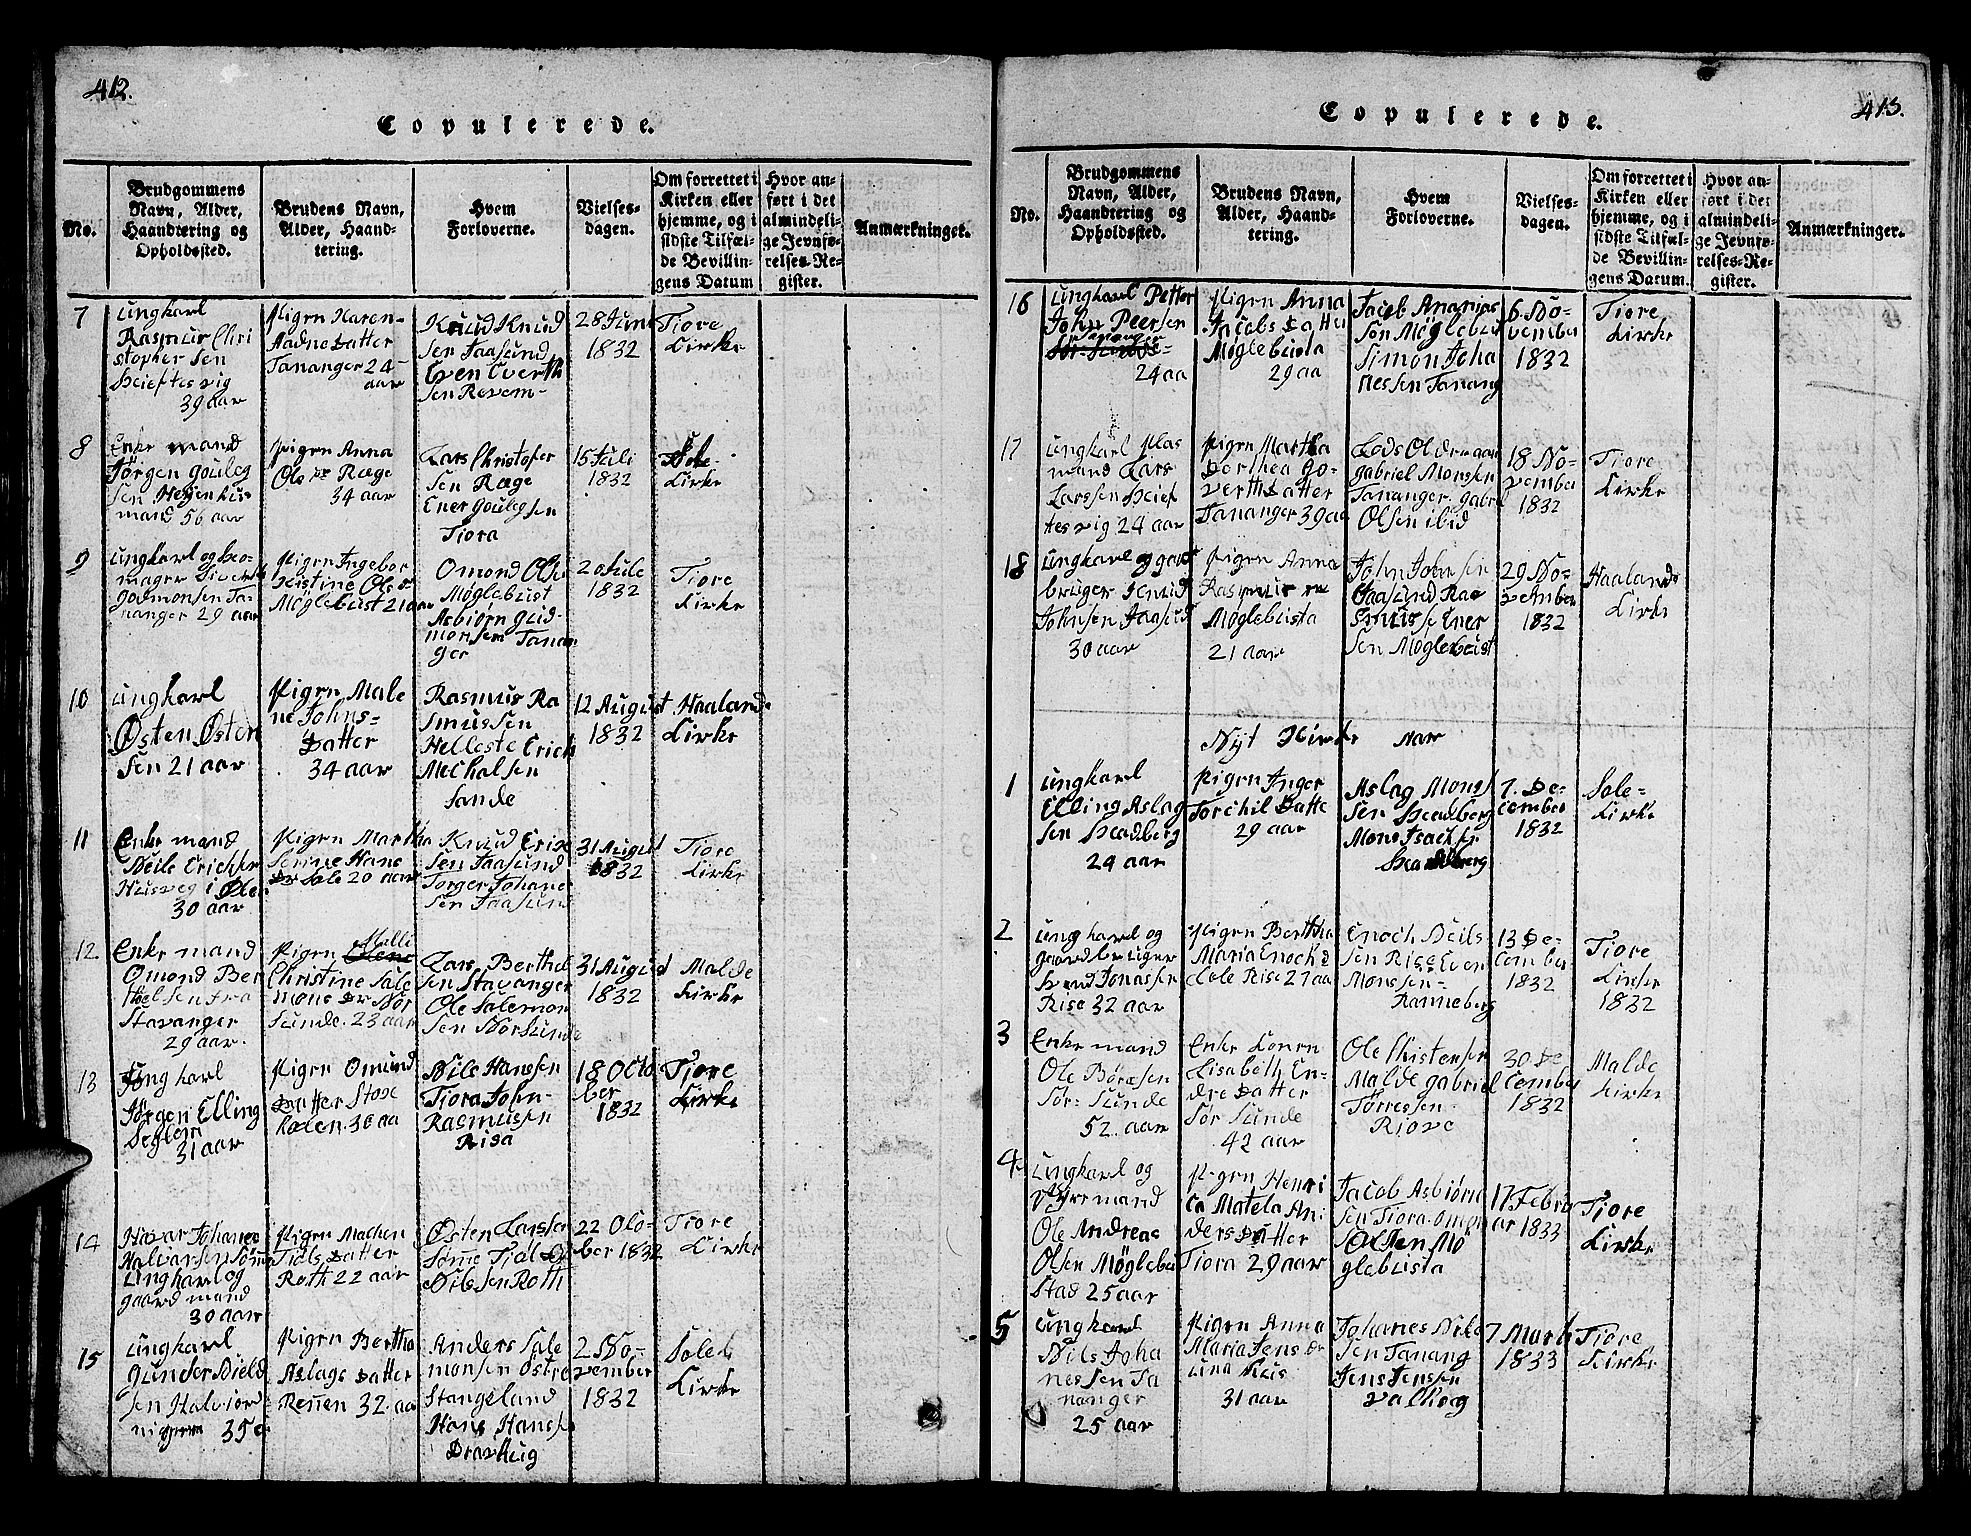 412.
Copulerede.
No.
Brudgommens
Navn, Alder,
Haandtering og
Opholdssted.
Brudens Navn,
Alder, Haand-
tering.
Hvem
Forloverne.
Vielses-
dagen.
Om forrettet i
Kirken eller
hjemme, og i
sidste Tilfæl-
de Bevillin-
gens Datum
Hvor an-
ført i det
almindeli-
ge Jevnfø-
relses-Re-
gister.
Anmærkninger.
7
ungkarl
Rasmus Chri
stopher sen
39 aar
Pigen Karen
Aadne Datter
Tananger 24
aar
Knud Knud
sen Jaasund
Even Everth
sen Revem-
28 Juni
1832
Tiore
Kirke
8
Enke mand
Jørgen gouleg
sen
mand 56 aar
Pigen Anna
Ole Dr Ræge
34 aar
Lars Christofer
sen Ræge
Ener Goulegsen
Tiora
15 Juli
1832
Sole
Kirke
9
ungkarl og
nanger 29 aar
Pigen Ingebor
Kistine Ole Dr
Møglebust 21 aar
Omond Ols
Møglebust
Asbiørn Gud-
monsen Tanan
ger
20 Jule
1832
Tiore
Kirke
10
ungkarl
Østen Østen
sen 21 aar
Pigen Male
ne Johns-
Datter
34 aar
Rasmus Ra
smussen
Helleste Erich
Mechalsen
Sande
12 August
1832
Haalands
Kirke
11
Enke mand
Neils Erichse
30 aar
Pigen Martha
Serine Hans
Dr Sole 20 aar
Knud Erixe
sen Jaasund
Torger Johane
sen Jaasund
31 August
1832
Tiore
Kirke
12.
Enke mand
Omond Ber
thelsen fra
Stavanger
29 aar.
Pigen Malli
Christine Sale
mons Dr Nør
Sunde. 23 aar
Lars Berthel
sen Stavanger
Ole Salemon
sen Nør Sunde
31 August
1832
Malde
Kirke
13
Ung karl
Jørgen Elling
Seglem
31 aar
Pigen Omund
Datter Store
30 aa
Nils Hansen
Tiora John
Rasmussen
Risa
18 Octo
ber
1832
Tiore
Kirke
14
Havar Johanes
Halvarsen Sømme
Ungkarl og
gaard mand
30 aar
Pigen Machen
Tiøls Datter
Roth 22 aar
Østen Larssen
Sømme Tiøl
Nilssen Roth
22 Octo-
ber 1832
Tiore
Kirke
15
ungkarl
Gunder Nield
sen
35
Pigen Bertha
Aslags Datter
Rennen 32 aa
Anders Sale
monsen Østre
Stangeland
Hans Hansen
2 No-
vember
1832
Soleb
Kirke
413.
Copulerede.
No.
Brudgommens
Navn, Alder,
Haandtering og
Opholdssted.
Brudens Navn,
Alder, Haand-
tering.
Hvem
Forloverne.
Vielses-
dagen.
Om forrettet i
Kirken eller
hjemme, og i
sidste Tilfæl-
de Bevillin-
gens Datum.
Hvor an-
ført i det
almindeli-
ge Jevnfø-
relses-Re-
gister.
Anmærkninger.
16
ungkarl Petter
John Peersen
24 aa
Pigen Anna
Jacobs Datter
Møglebusta
29 aa
Jacob Ananias
sen Møglebust
Simon Joha
nessen Tanang
6. No-
vember
1832
Tiore
Kirke
17
ungkarl
Lars
Larssen
24 aar
Pigen Martha
Dorthea Go-
verth Datter
Tananger 39 aa
Lods Oldermand
gabriel Monsen
Tananger. gabriel
Olsen ibid
18 No-
vember
1832
Tiore
Kirke
18
ungkarl og gaard
bruger Knud
Johnsen Jaasund
30 aar
Pigen Anna
Rasmus
Møglebusta
21 aar
John Johnsen
Jaasund Ras
Ener
sen Møglebust
29 No-
vember
1832
Haalands
Kirke
Nyt Kirke Aar
1
ungkarl
Elling Aslag
sen Skadberg
24 aar
Pigen Inger
Torchil Datte
29 aar
Aslag Mons
sen Skadberg
Mons Isachse
Skadberg
7. De-
cember
1832
Sole-
Kirke
2
ung karl og
gaardbruger
Jonassen
Rise 32 aar
Pigen Bertha
Maria Enochs
Rise 27 aa
Enoch Neils
sen Rise Even
Monssen
Ranneberg
13 De-
cember
1832
Tiore
Kirke
1832
3
Enke mand
Ole Børesen
Sør-Sunde
52. aar
Enke Konen
Lisabeth En-
dre Datter
Sør Sunde
42 aar
Ole Christensen
Malde gabriel
Tørressen
30 De
cember
1832
Malde
Kirke
4.
ungkarl og
Ole Andreas
Olsen Møglebu
stad 25 aar
Pigen Henri
ca Matela An
ders Datter
Tiora 29 aar
Jacob Asbiørn
sen Tiora
Olsen Mø
glebusta
17 Febru
ar 1833
Tiore
Kirke
5
ungkarl
Nils Joha
nessen Ta
nanger
25 aar
Pigen Anna
Maria Jens Dr
31 aar
Johanes Nils
sen Tanang
Jens Jensen
7 Marti
1833
Tiore
Kirke